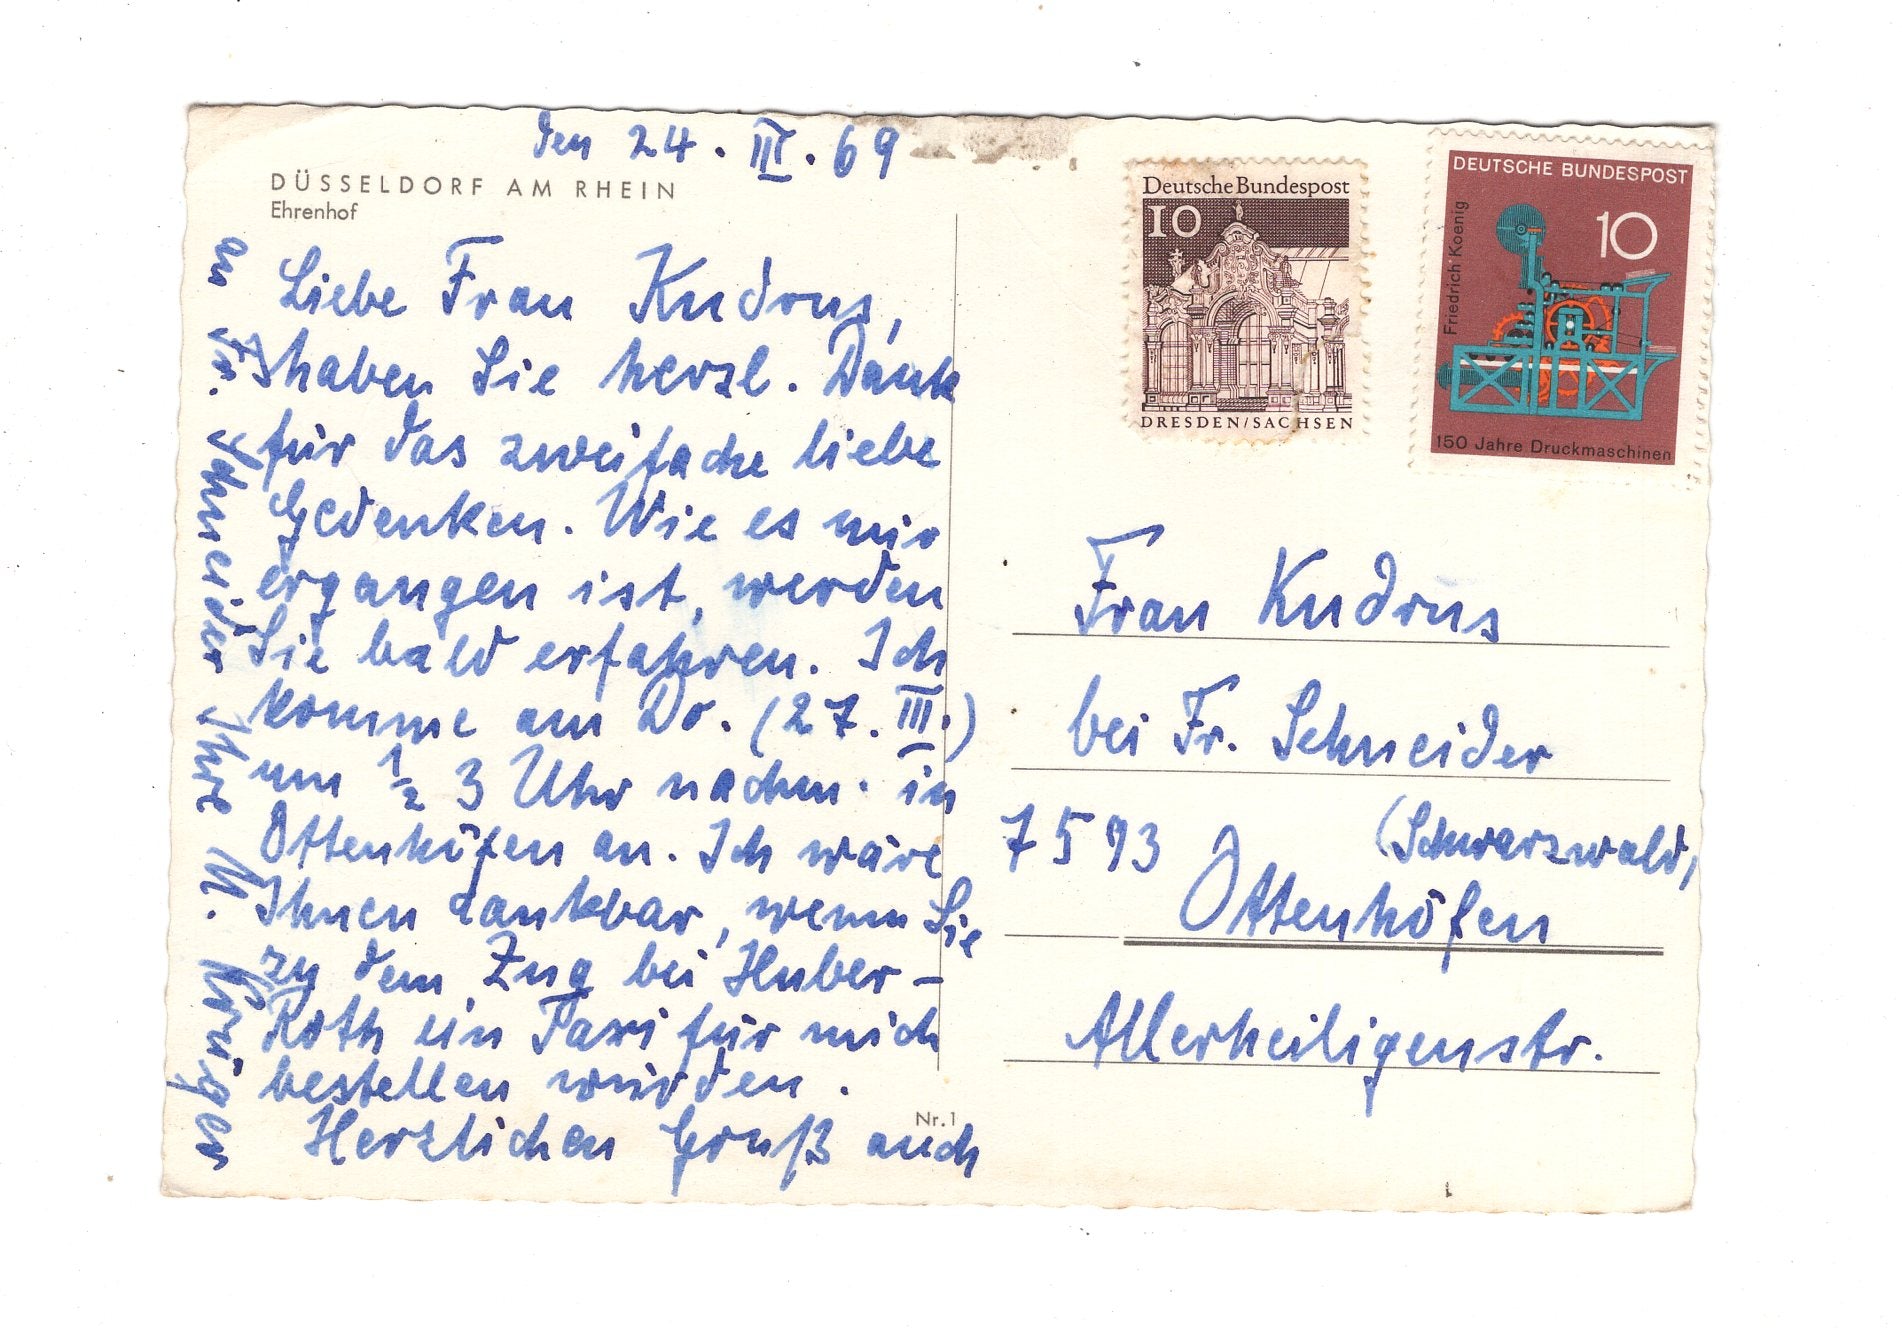 den 24. III. 69
DÜSSELDORF AM RHEIN
Ehrenhof
Liebe Frau Kudrus,
haben Sie herzl. Dank
für das zweifache liebe
Gedenken. Wie es mir
ergangen ist, werden
Sie bald erfahren. Ich
komme am Do. (27. III.)
um 1/2 3 Uhr nachm. in
Ottenhöfen an. Ich wäre
Ihnen dankbar, wenn Sie
zu dem Zug bei Huber-
Roth ein Taxi für mich
bestellen würden.
Herzlichen Gruß auch
an Frl. Schneider Ihre M. Krüger
Nr. 1
Deutsche Bundespost
10
DRESDEN/SACHSEN
DEUTSCHE BUNDESPOST
10
Friedrich Koenig
150 Jahre Druckmaschinen
Frau Kudrus
bei Fr. Schneider
7593 (Schwarzwald)
Ottenhöfen
Allerheiligenstr.